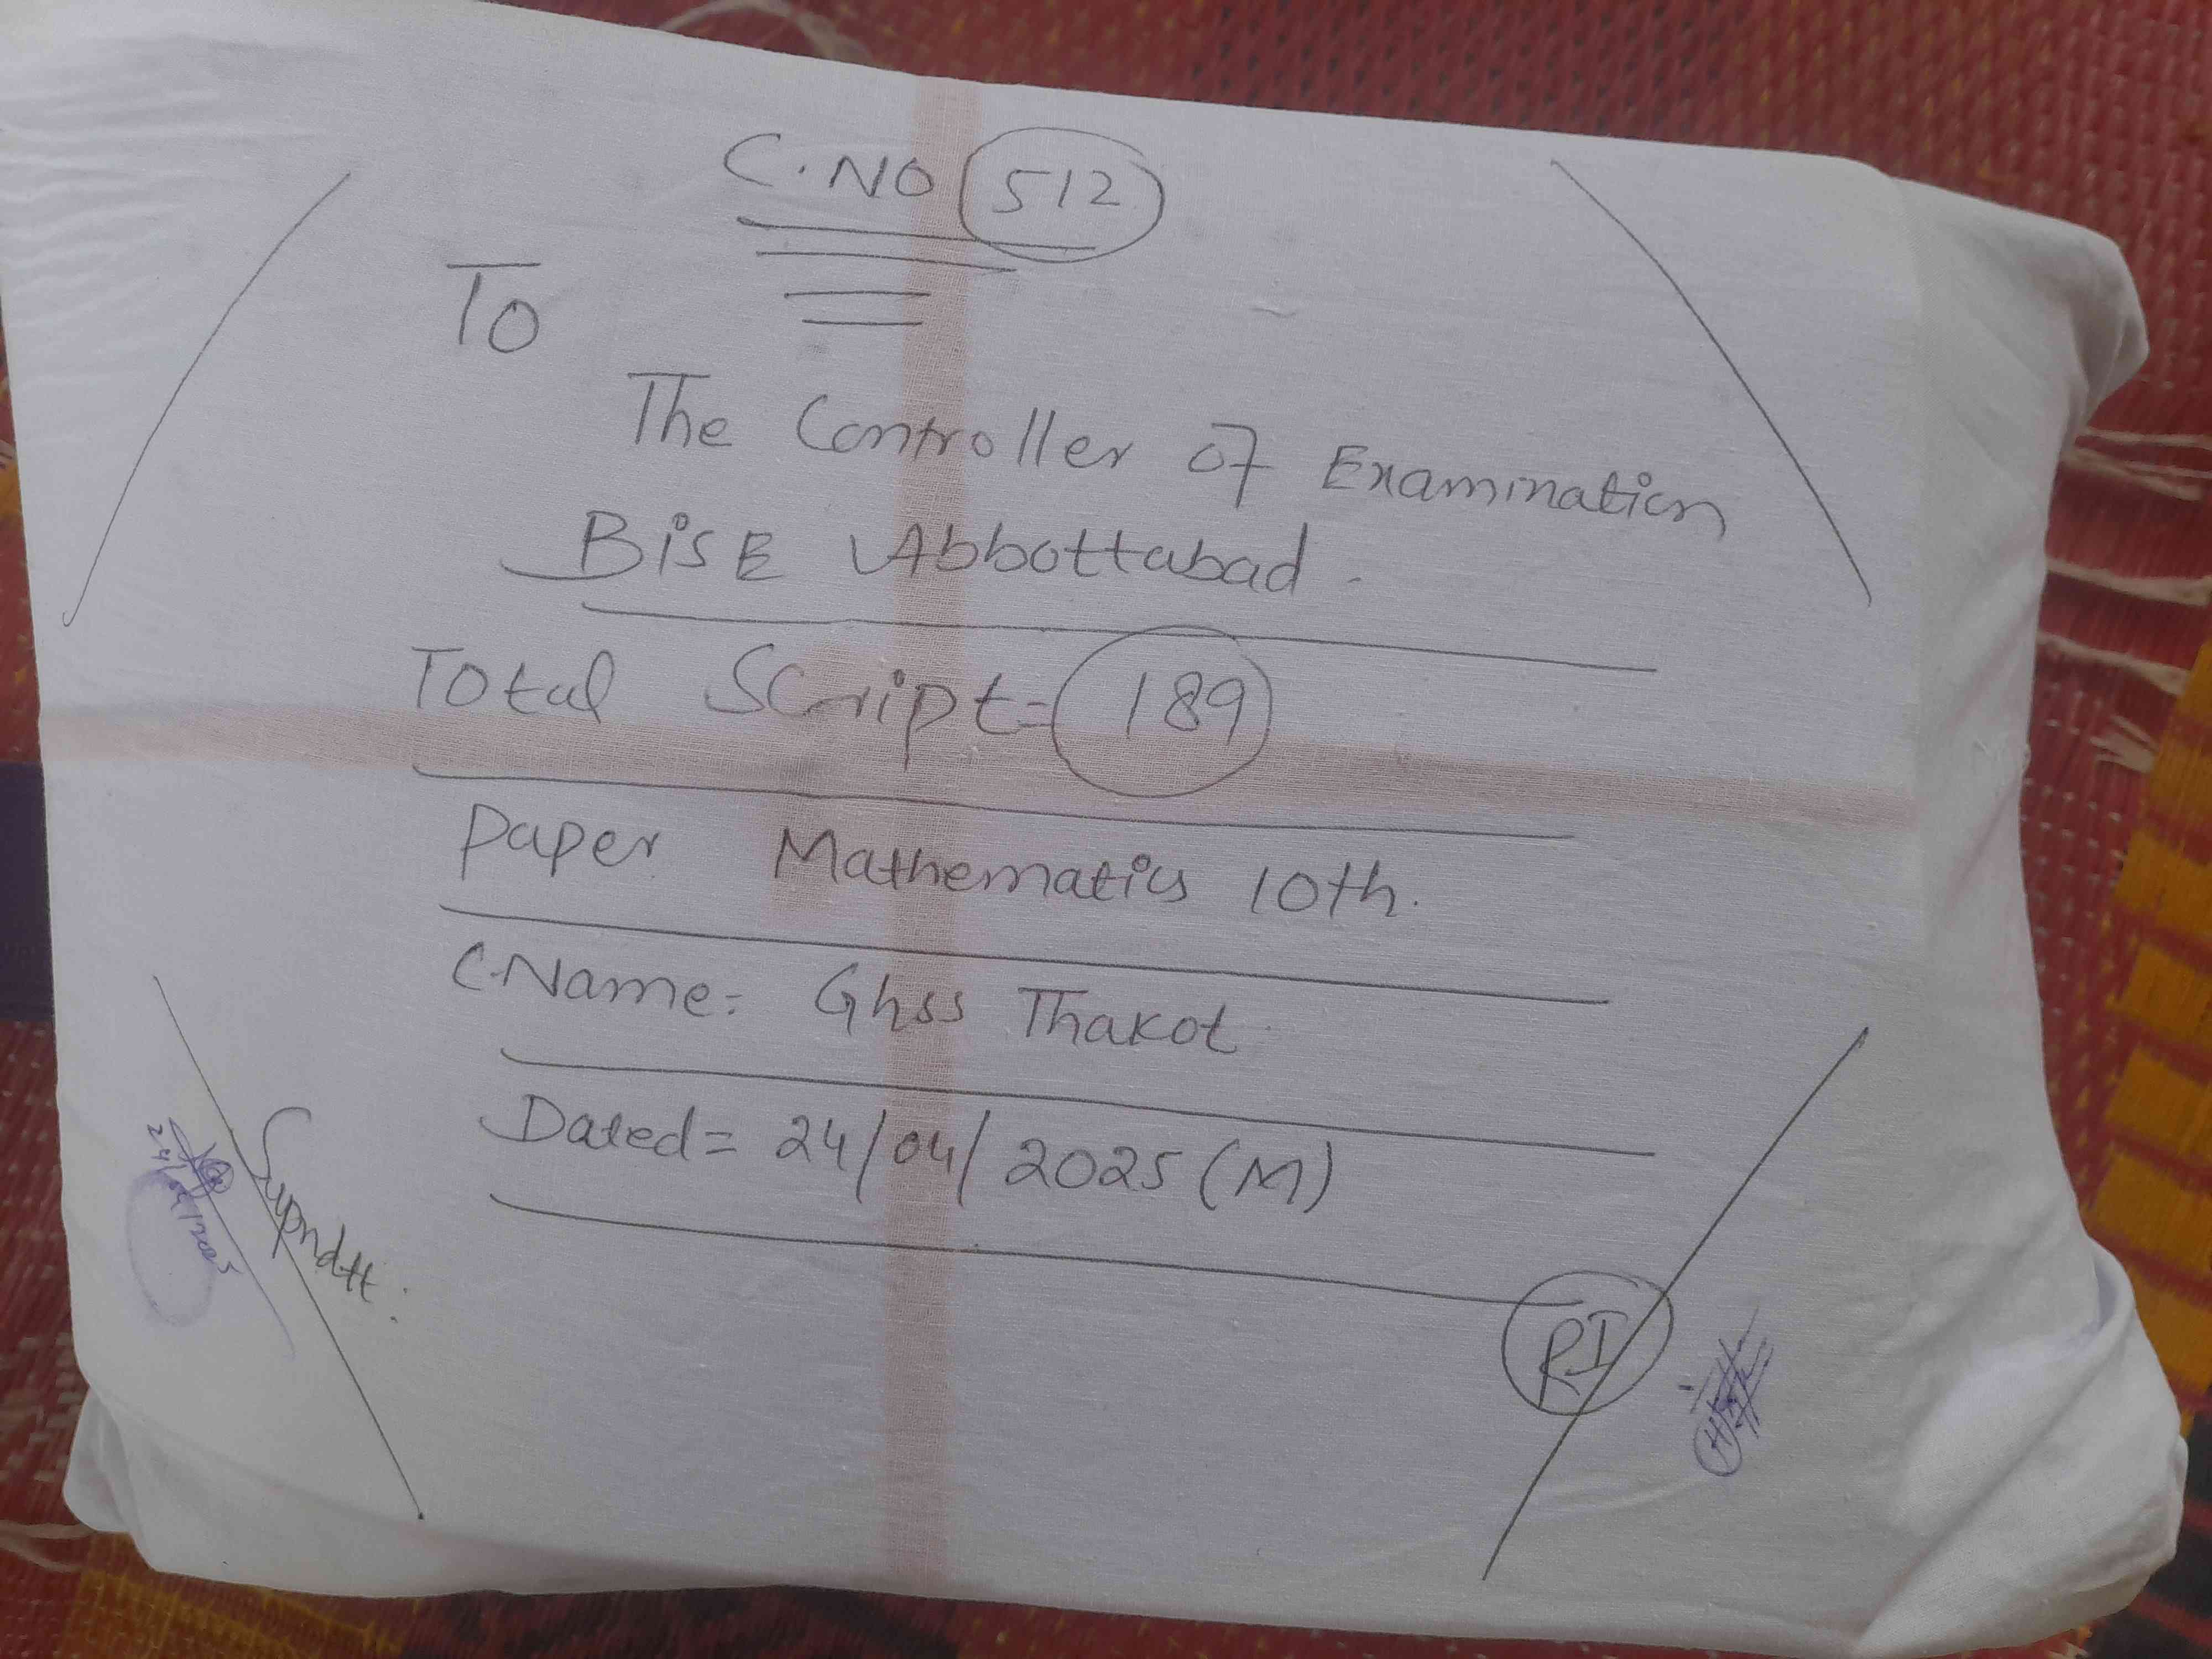 C.NO 512
To
The Controller of Examination
BISE Abbottabad.
Total Script= 189
Paper Mathematics 10th.
C.Name: Ghss Thakot
Dated= 24/04/2025 (M)
Supndtt.
24/04/2025
RI